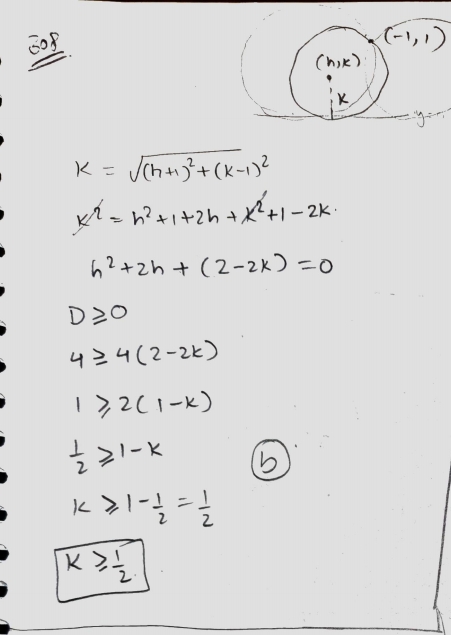 508
(-1,1)
(h,k)
k
y
K = √(h+1)²+(k-1)²
k² = h²+1+2h+k²+1-2k.
h²+2h+(2-2k)=0
D≥0
4≥4(2-2k)
1≥2(1-k)
1/2 ≥1-k
(b)
k≥1-1/2=1/2
K≥1/2